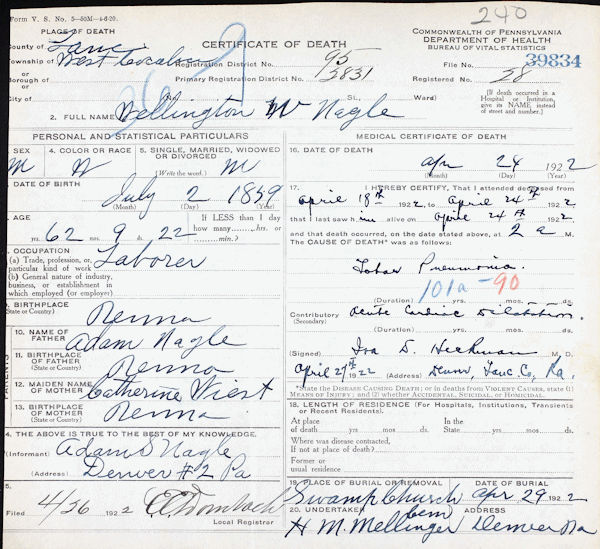 Form V. S. No. 5—50M—1-6-20.
240
PLACE OF DEATH
County of Lanc
Township of West Cocalico
or
Borough of
or
City of
CERTIFICATE OF DEATH
Registration District No. 95
Primary Registration District No. 3831
COMMONWEALTH OF PENNSYLVANIA
DEPARTMENT OF HEALTH
BUREAU OF VITAL STATISTICS
File No. 39834
Registered No. 28
No. St., Ward)
[If death occurred in a Hospital or Institution, give its NAME instead of street and number.]
2. FULL NAME Wellington W Nagle
PERSONAL AND STATISTICAL PARTICULARS
SEX M
4. COLOR OR RACE W
5. SINGLE, MARRIED, WIDOWED OR DIVORCED
(Write the word.) M
DATE OF BIRTH
July 2 1859
(Month) (Day) (Year)
AGE
62 yrs. 9 mos. 22 ds.
If LESS than 1 day how many hrs. or min.?
OCCUPATION
(a) Trade, profession, or particular kind of work Laborer
(b) General nature of industry, business, or establishment in which employed (or employer)
9. BIRTHPLACE
(State or Country) Penna
10. NAME OF FATHER Adam Nagle
11. BIRTHPLACE OF FATHER
(State or Country) Penna
PARENTS
12. MAIDEN NAME OF MOTHER Catherine Wiest
13. BIRTHPLACE OF MOTHER
(State or Country) Penna
4. THE ABOVE IS TRUE TO THE BEST OF MY KNOWLEDGE.
(Informant) Adam S Nagle
(Address) Denver #2 Pa
5.
Filed 4/26 1922
Local Registrar
MEDICAL CERTIFICATE OF DEATH
16. DATE OF DEATH
Apr 24 1922
(Month) (Day) (Year)
17. I HEREBY CERTIFY, That I attended deceased from
April 18th 1922, to April 24th 1922
that I last saw him alive on April 24th 1922
and that death occurred, on the date stated above, at 2 a M.
The CAUSE OF DEATH* was as follows:
Lobar Pneumonia.
101a-90
(Duration) yrs. mos. ds.
Contributory Acute Cardiac Dilatation.
(Secondary)
(Duration) yrs. mos. ds.
(Signed) Ira D. Heckman M. D.
April 27th 1922 (Address) Denver, Lanc Co, Pa.
*State the DISEASE CAUSING DEATH; or in deaths from VIOLENT CAUSES, state (1) MEANS OF INJURY; and (2) whether ACCIDENTAL, SUICIDAL, or HOMICIDAL.
18. LENGTH OF RESIDENCE (For Hospitals, Institutions, Transients or Recent Residents).
At place of death yrs. mos. ds.
In the State yrs. mos. ds.
Where was disease contracted,
If not at place of death?
Former or
usual residence
19. PLACE OF BURIAL OR REMOVAL
Swamp Church Cem
DATE OF BURIAL
Apr 29 1922
20. UNDERTAKER
H M. Mellinger
ADDRESS
Denver Pa